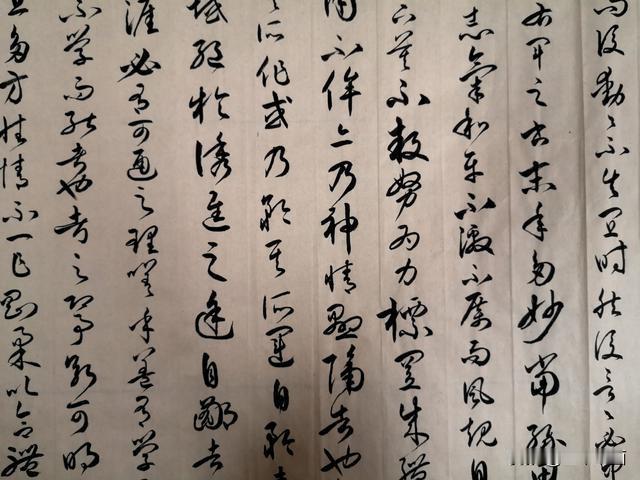 而後動〻不失宜時然後言〻必中
右軍之書末年多妙當緣思
志氣和平不激不厲而風規自
下莫不鼓努為力標置成體
用不侔亦乃神情懸隔者也
其所作或乃矜其所運自矜者
域絕於誘進之途自鄙者
涯必有可通之理嗟乎蓋有學
不學而能者也考之即事斷可明
多方性情不一乍剛柔以合體